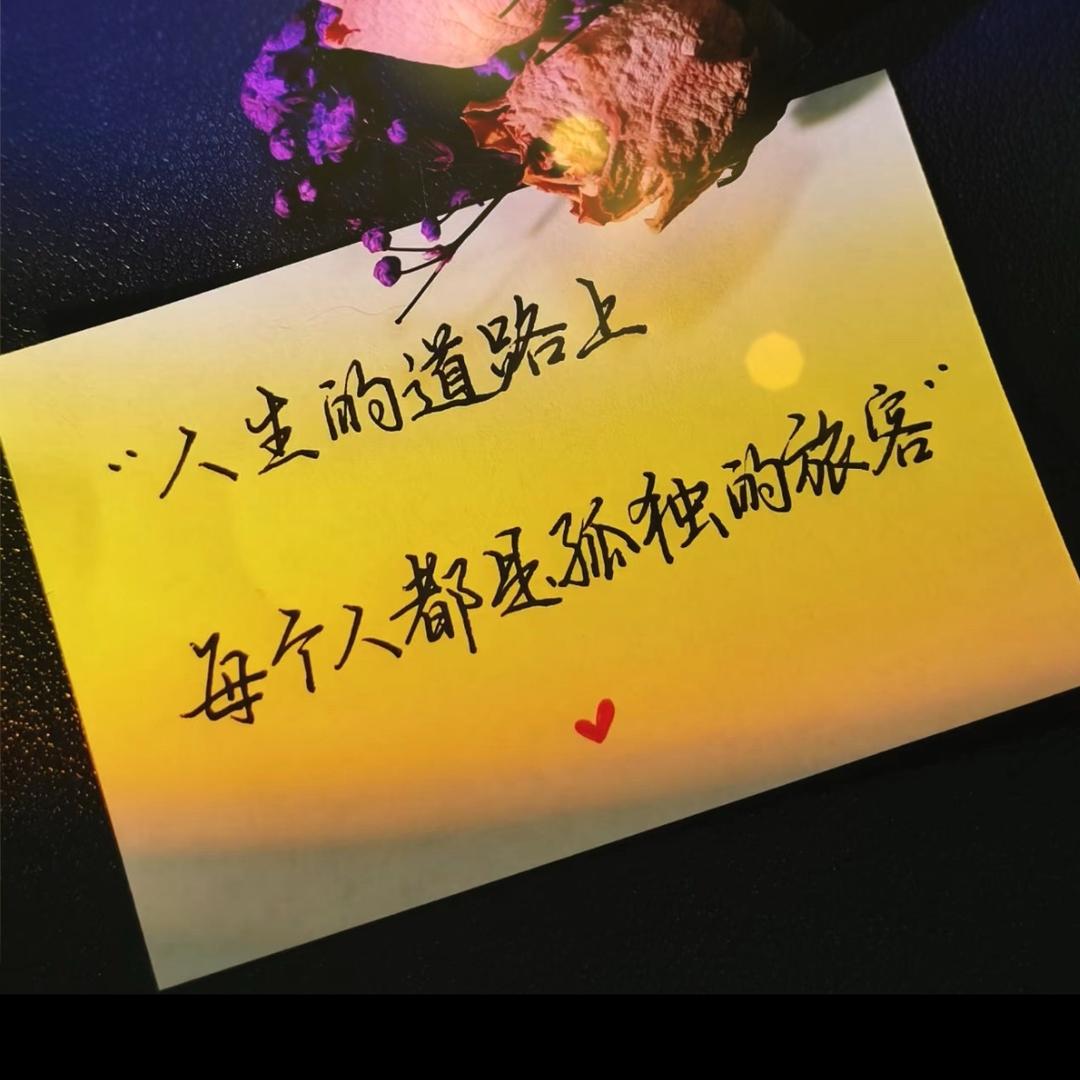 “人生的道路上
每个人都是孤独的旅客”